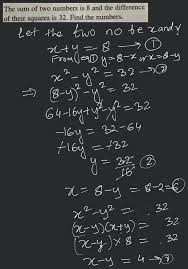 The sum of two numbers is 8 and the difference
of their squares is 32. Find the numbers.
Let the two no be x and y
x+y = 8 → ①
From eq ① y = 8-x or x = 8-y
x² - y² = 32 → ②
⇒ (8-y)² - y² = 32
64-16y+y²-y² = 32
-16y = 32-64
-16y = -32
y = 32/16 = 2
x = 8-y = 8-2 = 6
x² - y² = 32
(x-y)(x+y) = 32
(x-y) × 8 = 32
x-y = 4 → ③